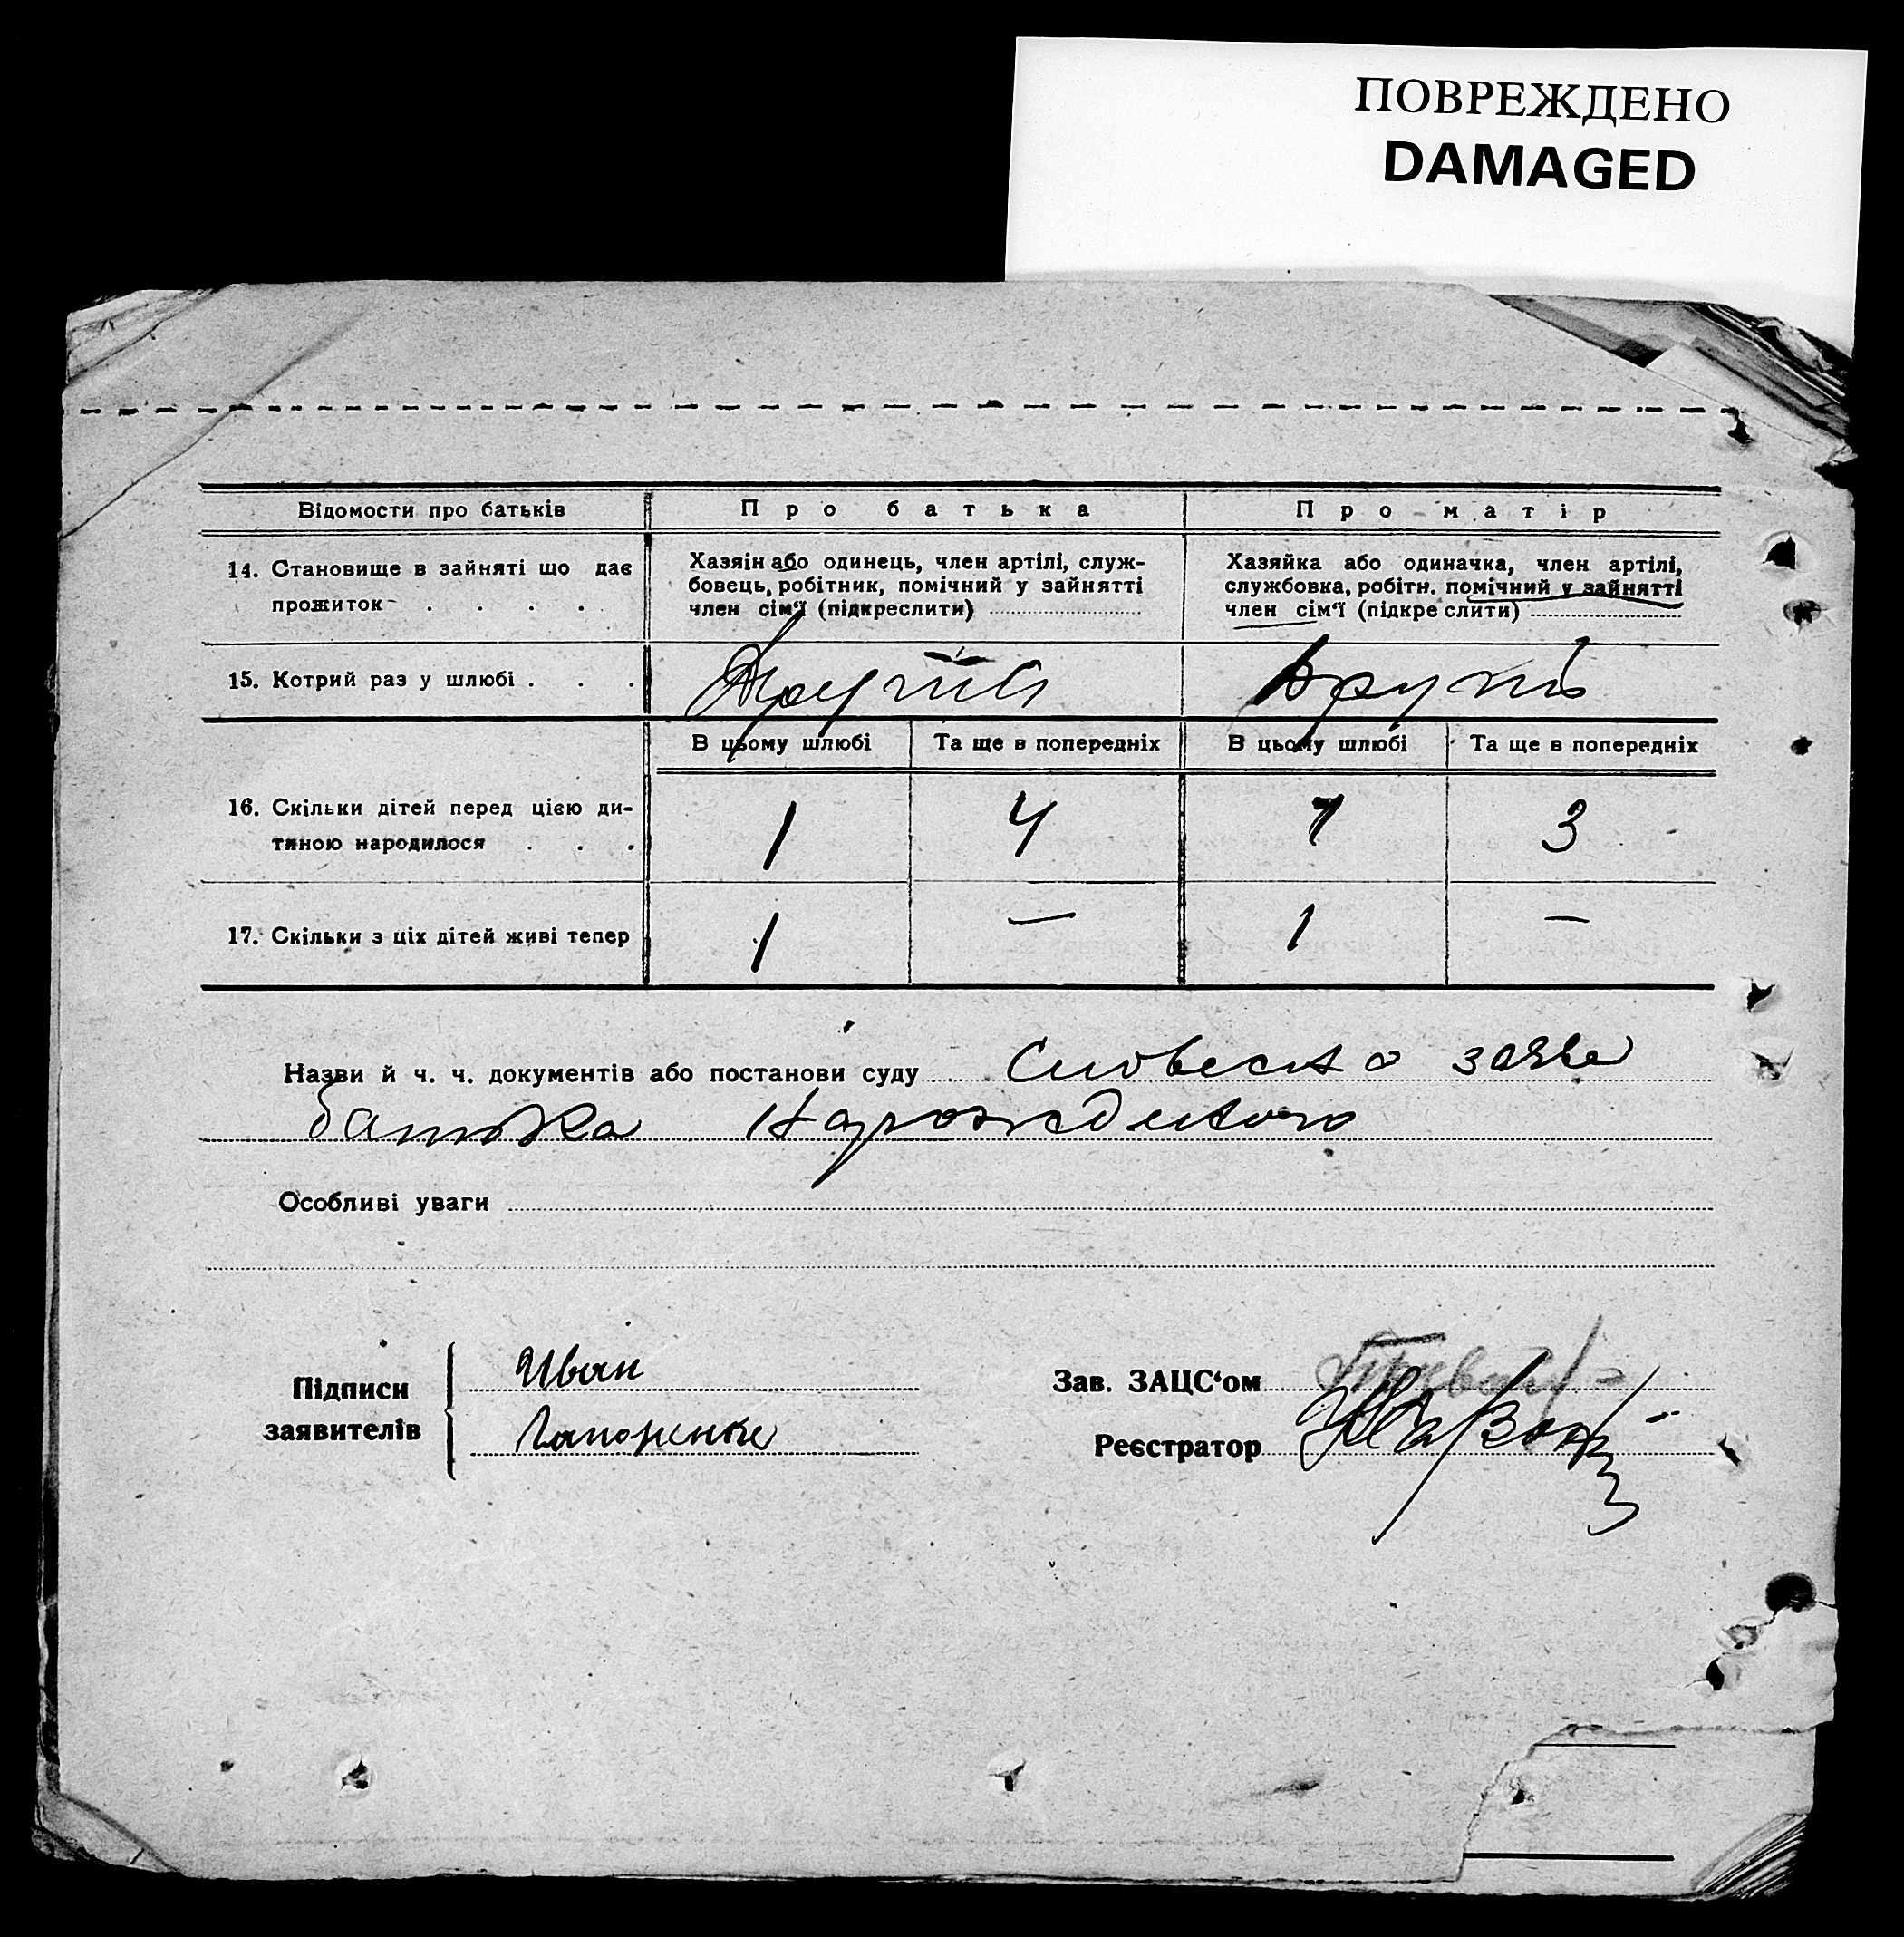 ПОВРЕЖДЕНО
DAMAGED
Відомости про батьків
Про батька
Про матір
14. Становище в зайняті що дає
прожиток . . . .
Хазяін або одинець, член артілі, служ-
бовець, робітник, помічний у зайнятті
член сім'ї (підкреслити)
Хазяйка або одиначка, член артілі,
службовка, робітн. помічний у зайнятті
член сім'ї (підкреслити)
15. Котрий раз у шлюбі . . .
В цьому шлюбі
Та ще в попередніх
В цьому шлюбі
Та ще в попередніх
16. Скільки дітей перед цією ди-
тиною народилося . . .
1
4
1
3
17. Скільки з ціх дітей живі тепер
1
—
1
—
Назви й ч. ч. документів або постанови суду Словесно заява
батька Нарожденого
Особливі уваги
Підписи
заявителів
Иван
Зав. ЗАЦС'ом
Реєстратор